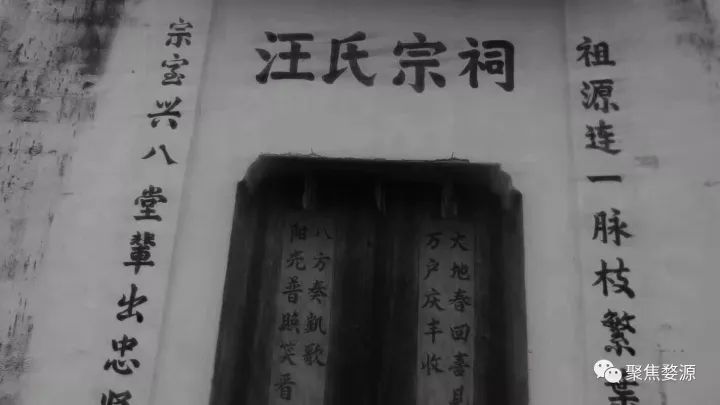 汪氏宗祠
祖源连一脉枝繁葉
宗室兴八堂輩出忠贤
大地春回喜見
万户庆丰收
八方奏凱歌
阳光普照笑晋
聚焦婺源